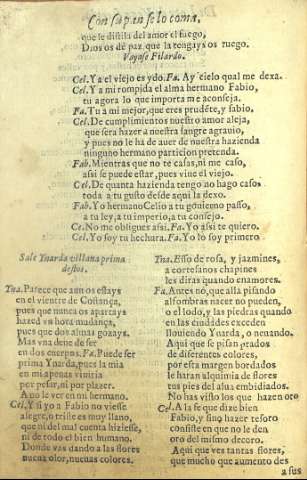 Con su pan se lo coma,
que le distila del amor el fuego,
Dios os dè paz, que la tengays os ruego.
Vayase Filardo.
Cel. Ya el viejo es ydo. Fa. Ay cielo qual me dexa.
Cel. Y a mi rompida el alma hermano Fabio,
tu agora lo que importa me aconseja.
Fa. Tu a mi mejor, que eres prudẽte, y sabio.
Cel. De cumplimientos nuestro amor aleja,
que sera hazer a nuestra sangre agrauio,
y pues no le ha de auer de nuestra hazienda
ninguno hermano particion pretenda.
Fab. Mientras que no te casas, ni me caso,
assi se puede estar, pues viue el viejo.
Cel. De quanta hazienda tengo no hago caso,
toda a tu gusto desde aqui la dexo.
Fab. Yo hermano Celio a tu gouierno passo,
a tu ley, a tu imperio, a tu consejo.
Ce. No me obligues assi. Fa. Yo assi te quiero.
Cel. Yo soy tu hechura. Fa. Yo lo soy primero
Sale Ynarda villana prima
destos.
Yna. Parece que aun os estays
en el vientre de Costança,
pues que nunca os apartays
hazed vn hora mudança,
pues que dos almas gozays.
Mas vna deue de ser
en dos cuerpos. Fa. Puede ser
prima Ynarda, pues la mia
en mi apenas viuiria
por pesar, ni por plazer.
A no le ver en mi hermano.
Cel. Y si yo a Fabio no viesse
alegre, o triste es muy llano,
que ni del mal cuenta hiziesse,
ni de todo el bien humano.
Donde vas dando a las flores
nueua olor, nueuas colores.
Yna. Esso de rosa, y jazmines,
a cortesanos chapines
les diras quando enamores.
Fa. Antes no, que alla pisando
alfombras nacer no pueden,
o el lodo, y las piedras quando
en las ciudades exceden
llouiendo Ynarda, o neuando.
Aqui que se pisan prados
de diferentes colores,
por esta margen bordados
le haran alquimia de flores
tus pies del alua embidiados.
No has visto los que hazen oro
Cel. A la fe que dize bien
Fabio, y sino hazer tesoro
consiste en que no le den
oro del mismo decoro.
Aqui que ves tantas flores,
que mucho que aumento des
a sus